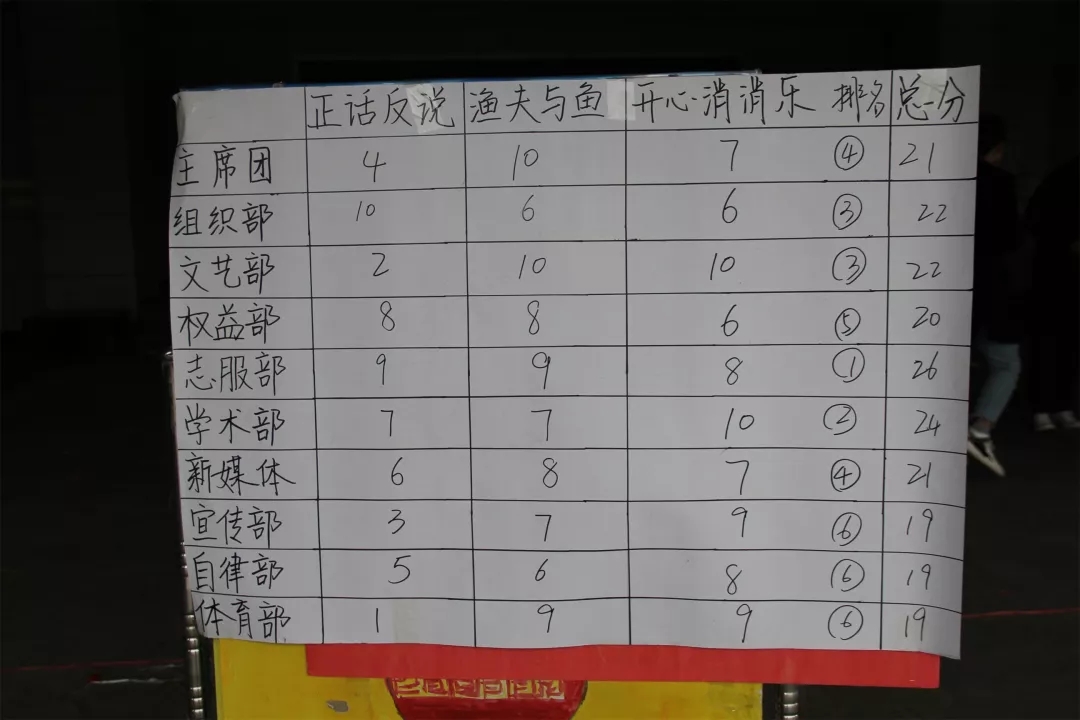 正话反说 渔夫与鱼 开心消消乐 排名 总分
主席团 4 10 7 ④ 21
组织部 10 6 6 ③ 22
文艺部 2 10 10 ③ 22
权益部 8 8 6 ⑤ 20
志服部 9 9 8 ① 26
学术部 7 7 10 ② 24
新媒体 6 8 7 ④ 21
宣传部 3 7 9 ⑥ 19
自律部 5 6 8 ⑥ 19
体育部 1 9 9 ⑥ 19